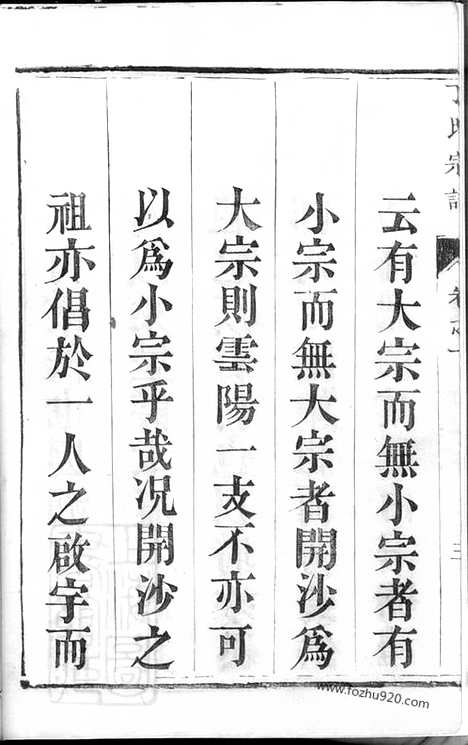 云有大宗而無小宗者有
小宗而無大宗者開沙為
大宗則雲陽一支不亦可
以為小宗乎哉况開沙之
祖亦倡於一人之啟宇而
三
www.fozhu920.com